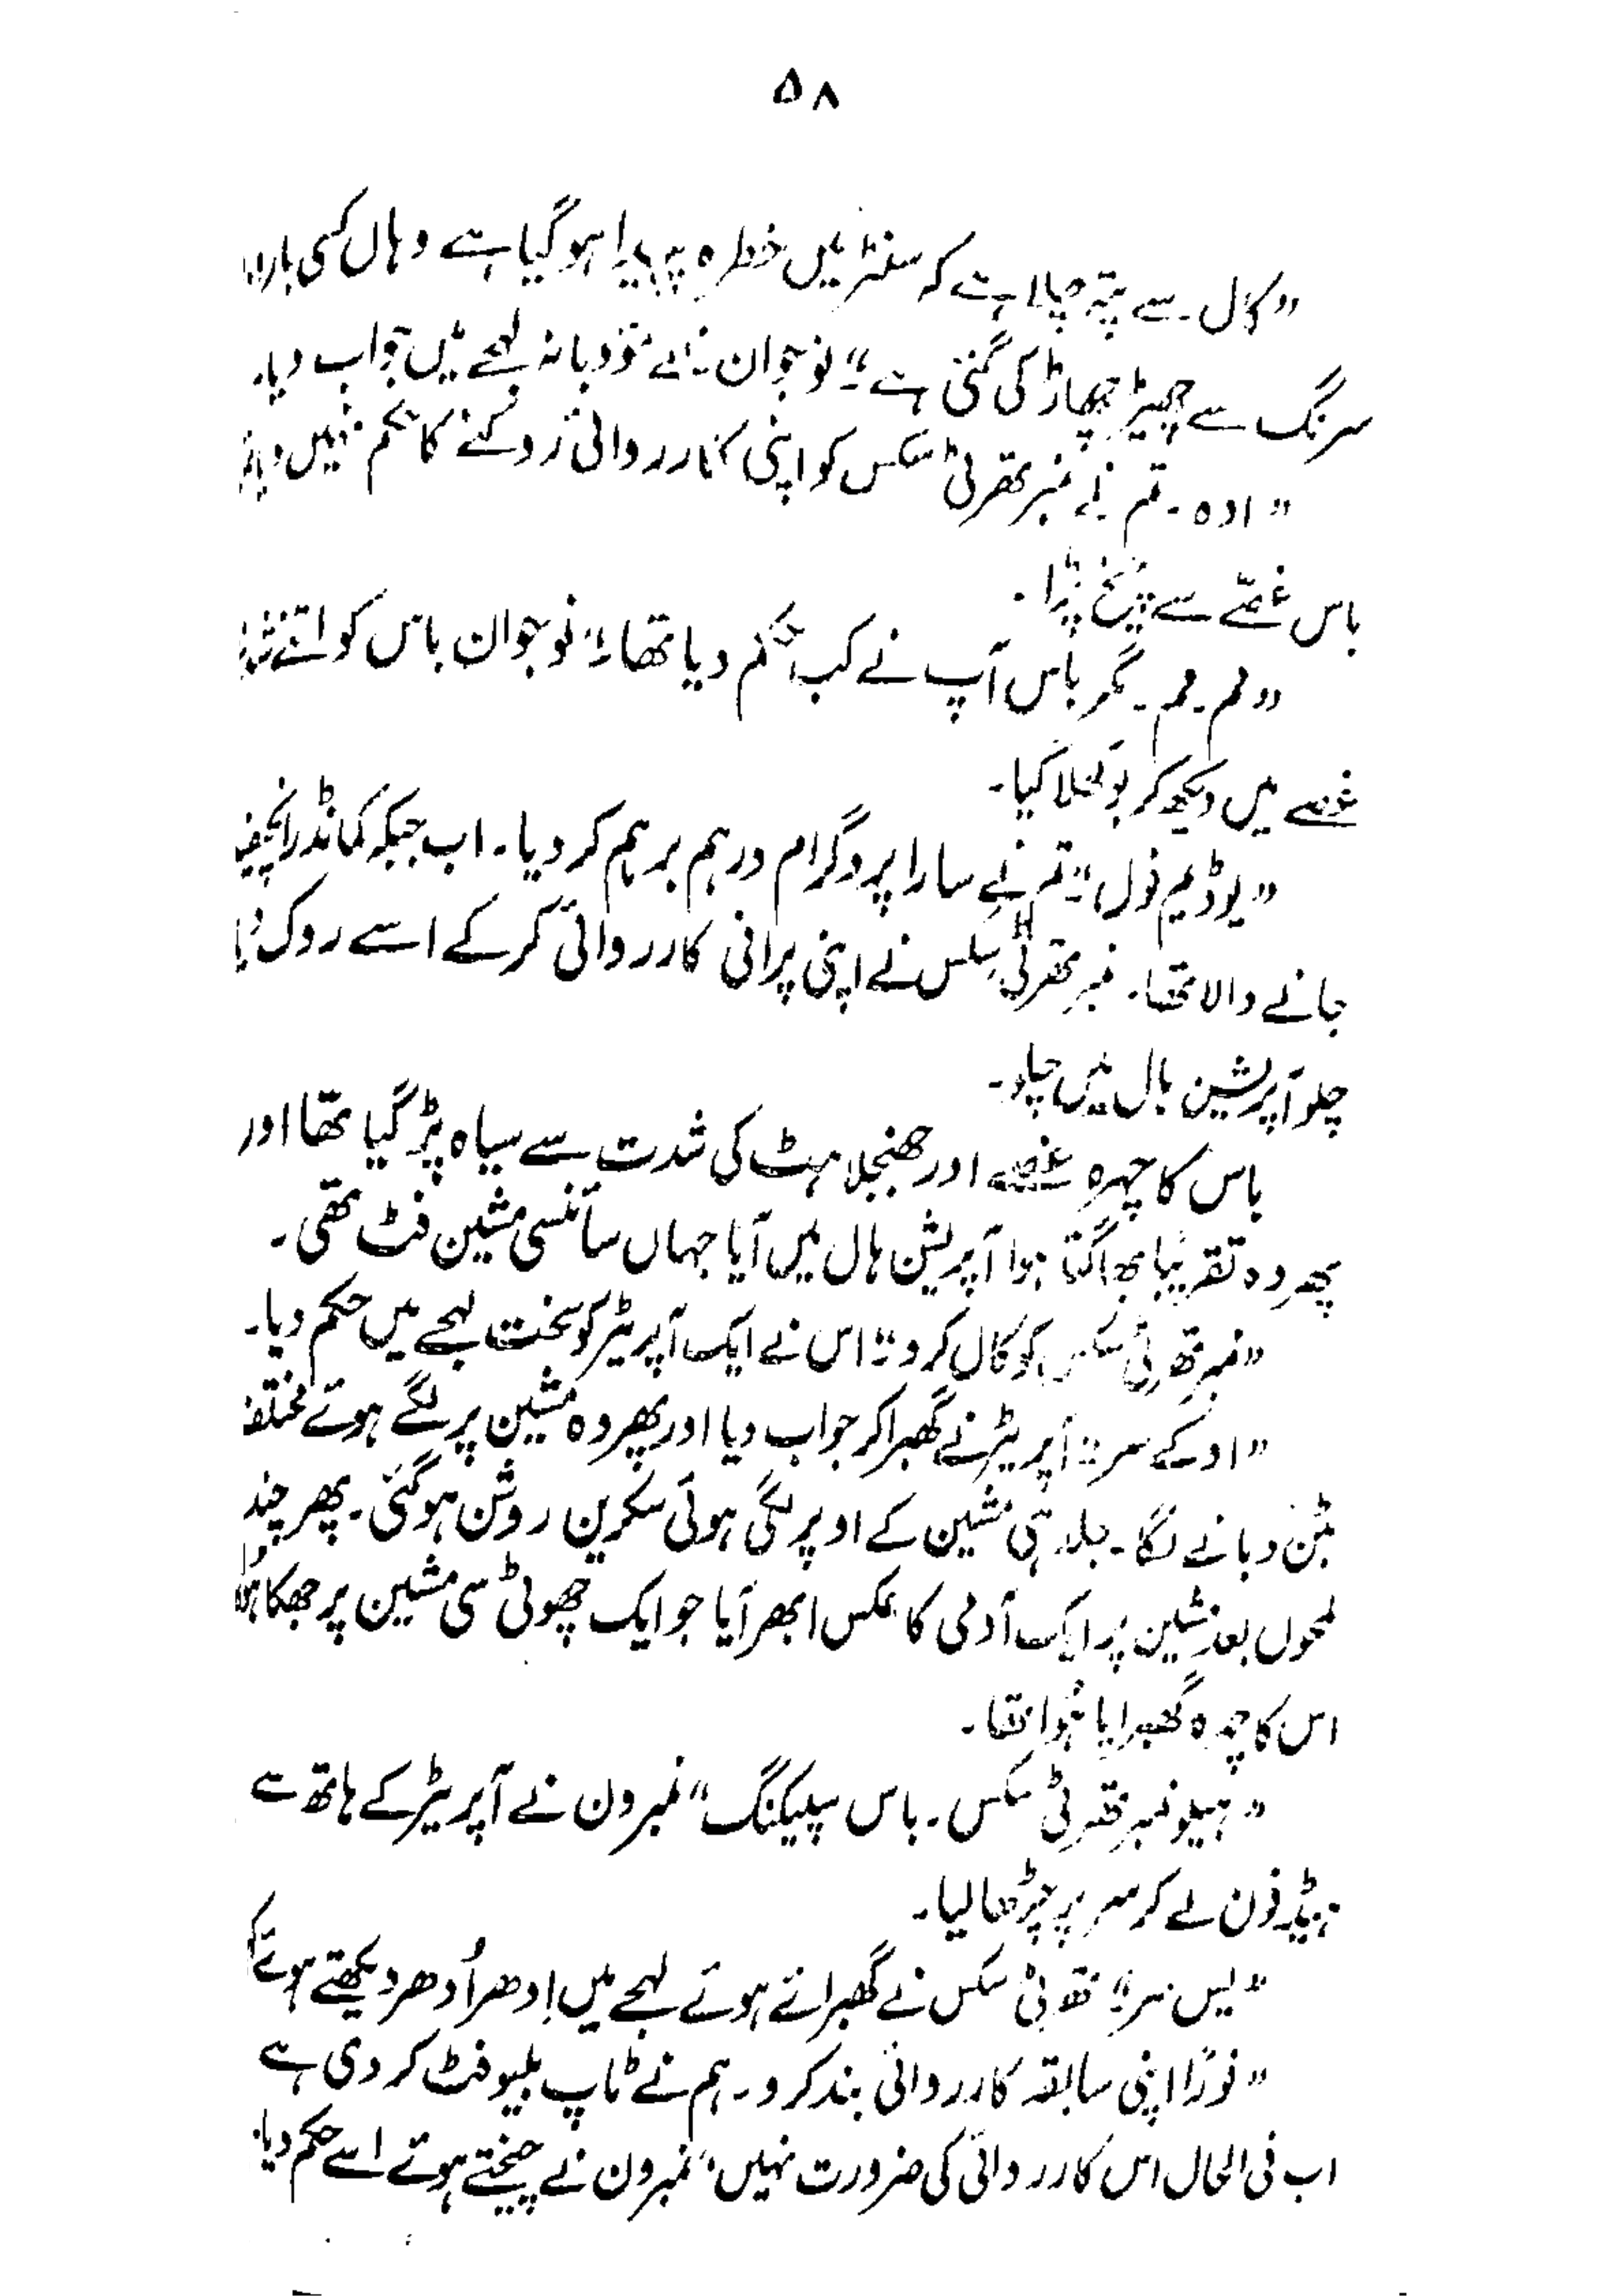 ۵۸
"کال سے پتہ چلا ہے کہ سنٹر میں خطرہ پیدا ہو گیا ہے وہاں کسی
سرنگ سے چھیڑ چھاڑ کی گئی ہے"۔ نوجوان نے مؤدبانہ لہجے میں جواب دیا۔
"اوہ۔ تم نے نمبر تھرٹی سکس کو اپنی کارروائی روکنے کا حکم نہیں
باس غصّے سے چیخ پڑا۔
"مم۔ مم۔ مگر باس آپ نے کب حکم دیا تھا"؟ نوجوان باس کو اتنے
غصے میں دیکھ کر بوکھلا گیا۔
"یوڈیم فول" تم نے سارا پروگرام درہم برہم کر دیا۔ اب جبکہ کمانڈر انچیف
جانے والا تھا۔ نمبر تھرٹی سکس نے اپنی پرانی کارروائی کر کے اسے روک دیا
چلو آپریشین ہال میں چلو۔
باس کا چہرہ غصے اور جھنجلاہٹ کی شدت سے سیاہ پڑ گیا تھا اور
پھر وہ تقریباً بھاگتا ہوا آپریشن ہال میں آیا جہاں سائنسی مشین فٹ تھی۔
"نمبر تھرٹی سکس کو کال کرو"؛ اس نے ایک آپریٹر کو سخت لہجے میں حکم دیا۔
"اوکے سر"؛ آپریٹر نے گھبرا کر جواب دیا اور پھر وہ مشین پر لگے ہوئے مختلف
بٹن دبانے لگا۔ جلد ہی مشین کے اوپر لگی ہوئی سکرین روشن ہو گئی۔ پھر چند
لمحوں بعد مشین پر ایک آدمی کا عکس ابھر آیا جو ایک چھوٹی سی مشین پر جھکا ہوا
اس کا چہرہ گھبرایا ہوا تھا۔
"ہیلو نمبر تھرٹی سکس۔ باس سپیکنگ" نمبر ون نے آپریٹر کے ہاتھ سے
ہیڈ فون لے کر سر پر چڑھا لیا۔
"یس سر"؛ تھرٹی سکس نے گھبرائے ہوئے لہجے میں اِدھر اُدھر دیکھتے ہوئے
"فوراً اپنی سابقہ کارروائی بند کرو۔ ہم نے ٹاپ بلیو فٹ کر دی ہے
اب فی الحال اس کارروائی کی ضرورت نہیں" نمبر ون نے چیختے ہوئے اسے حکم دیا۔